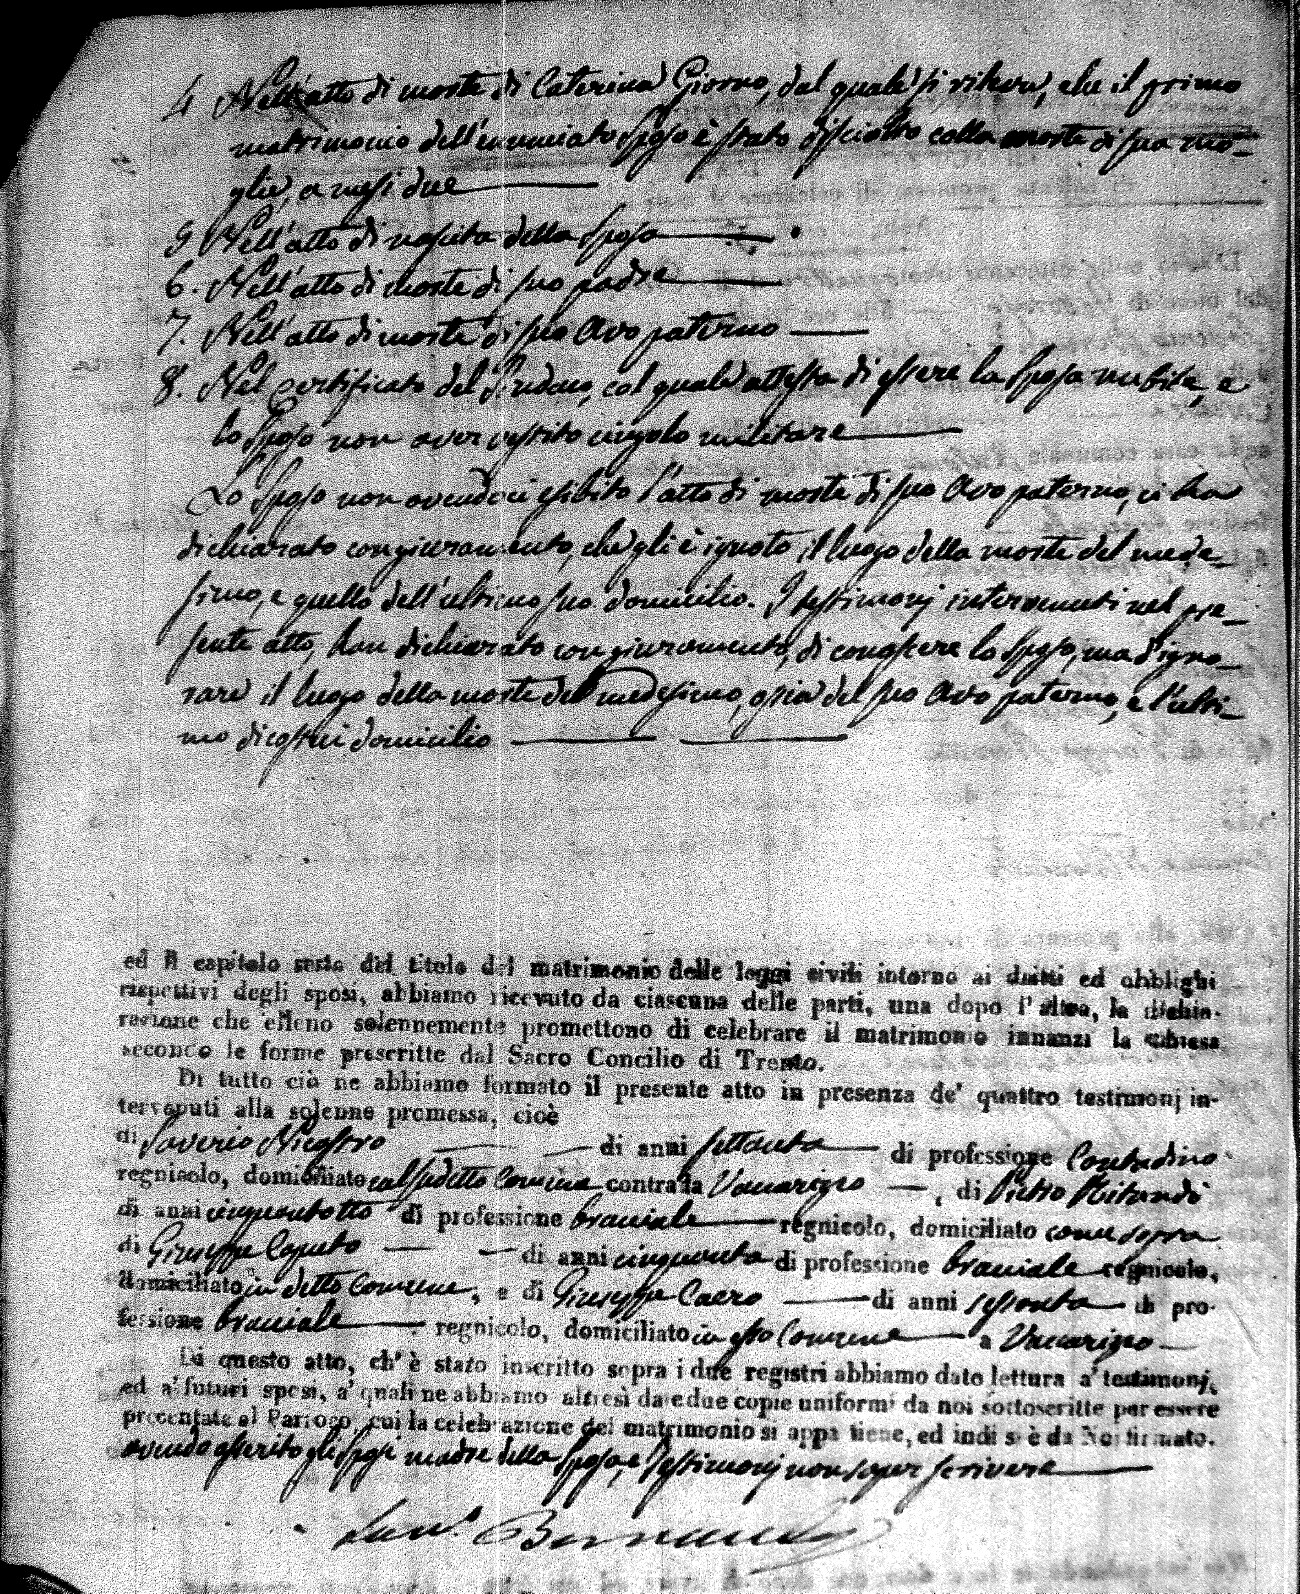 4 Nell'atto di morte di Caterina Giorno, dal quale si rileva, che il primo
matrimonio dell'enunciato Sposo è stato disciolto colla morte di sua mo-
glie, a mesi due
5 Nell'atto di nascita della Sposa
6. Nell'atto di morte di suo padre
7. Nell'atto di morte di suo Avo paterno
8. Nel certificato del Sindaco, col quale attesta di essere la Sposa nubile, e
lo Sposo non aver vestito cingolo militare
Lo Sposo non avendoci esibito l'atto di morte di suo Avo paterno, ci ha
dichiarato con giuramento, che gli è ignoto il luogo della morte del mede-
simo, e quello dell'ultimo suo domicilio. I testimonj intervenuti nel pre-
sente atto, han dichiarato con giuramento, di conoscere lo Sposo, ma d'igno-
rare il luogo della morte del medesimo, ossia del suo Avo paterno, e l'ulti-
mo di costui domicilio
ed il capitolo sesto del titolo del matrimonio delle leggi civili intorno ai dritti ed obblighi
rispettivi degli sposi, abbiamo ricevuto da ciascuna delle parti, una dopo l'altra, la dichia-
razione che elleno solennemente promettono di celebrare il matrimonio innanzi la Chiesa
secondo le forme prescritte dal Sacro Concilio di Trento.
Di tutto ciò ne abbiamo formato il presente atto in presenza de' quattro testimonj in-
tervenuti alla solenne promessa, cioè
di Saverio Nicastro di anni settanta di professione Contadino
regnicolo, domiciliato sul sudetto Comune contrada Vaccarizzo, di Pietro
di anni cinquantotto di professione bracciale regnicolo, domiciliato come sopra
di Giuseppe Caputo di anni cinquanta di professione bracciale regnicolo,
domiciliato in detto Comune, e di Giuseppe Caero di anni sessanta di pro-
fessione bracciale regnicolo, domiciliato in esso Comune a Vaccarizzo
Di questo atto, ch'è stato inscritto sopra i due registri abbiamo dato lettura a' testimonj,
ed a' futuri sposi, a' quali ne abbiamo altresì date due copie uniformi da noi sottoscritte per essere
presentate al Parroco, cui la celebrazione del matrimonio si appartiene, ed indi si è da Noi firmato.
avendo asserito gli Sposi madre della Sposa, e testimonj non saper scrivere